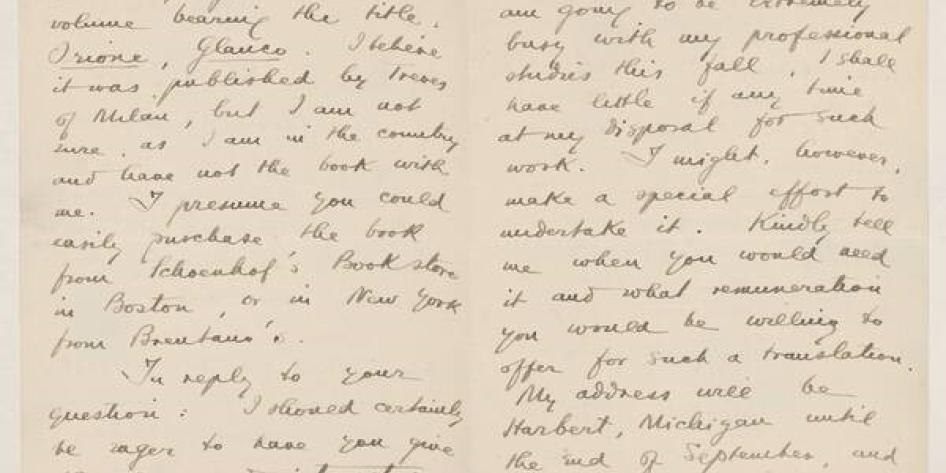 volume bearing the title.
Orione, Glauco. I believe
it was published by Treves
of Milan, but I am not
sure, as I am in the country
and have not the book with
me. I presume you could
easily purchase the book
from Schoenhof's Book store
in Boston, or in New York
from Brentano's.
In reply to your
question: I should certainly
be eager to have you give
am going to be extremely
busy with my professional
studies this fall, I shall
have little if any time
at my disposal for such
work. I might, however,
make a special effort to
undertake it. Kindly tell
me when you would need
it and what remuneration
you would be willing to
offer for such a translation.
My address will be
Harbert, Michigan until
the 2nd of September, and